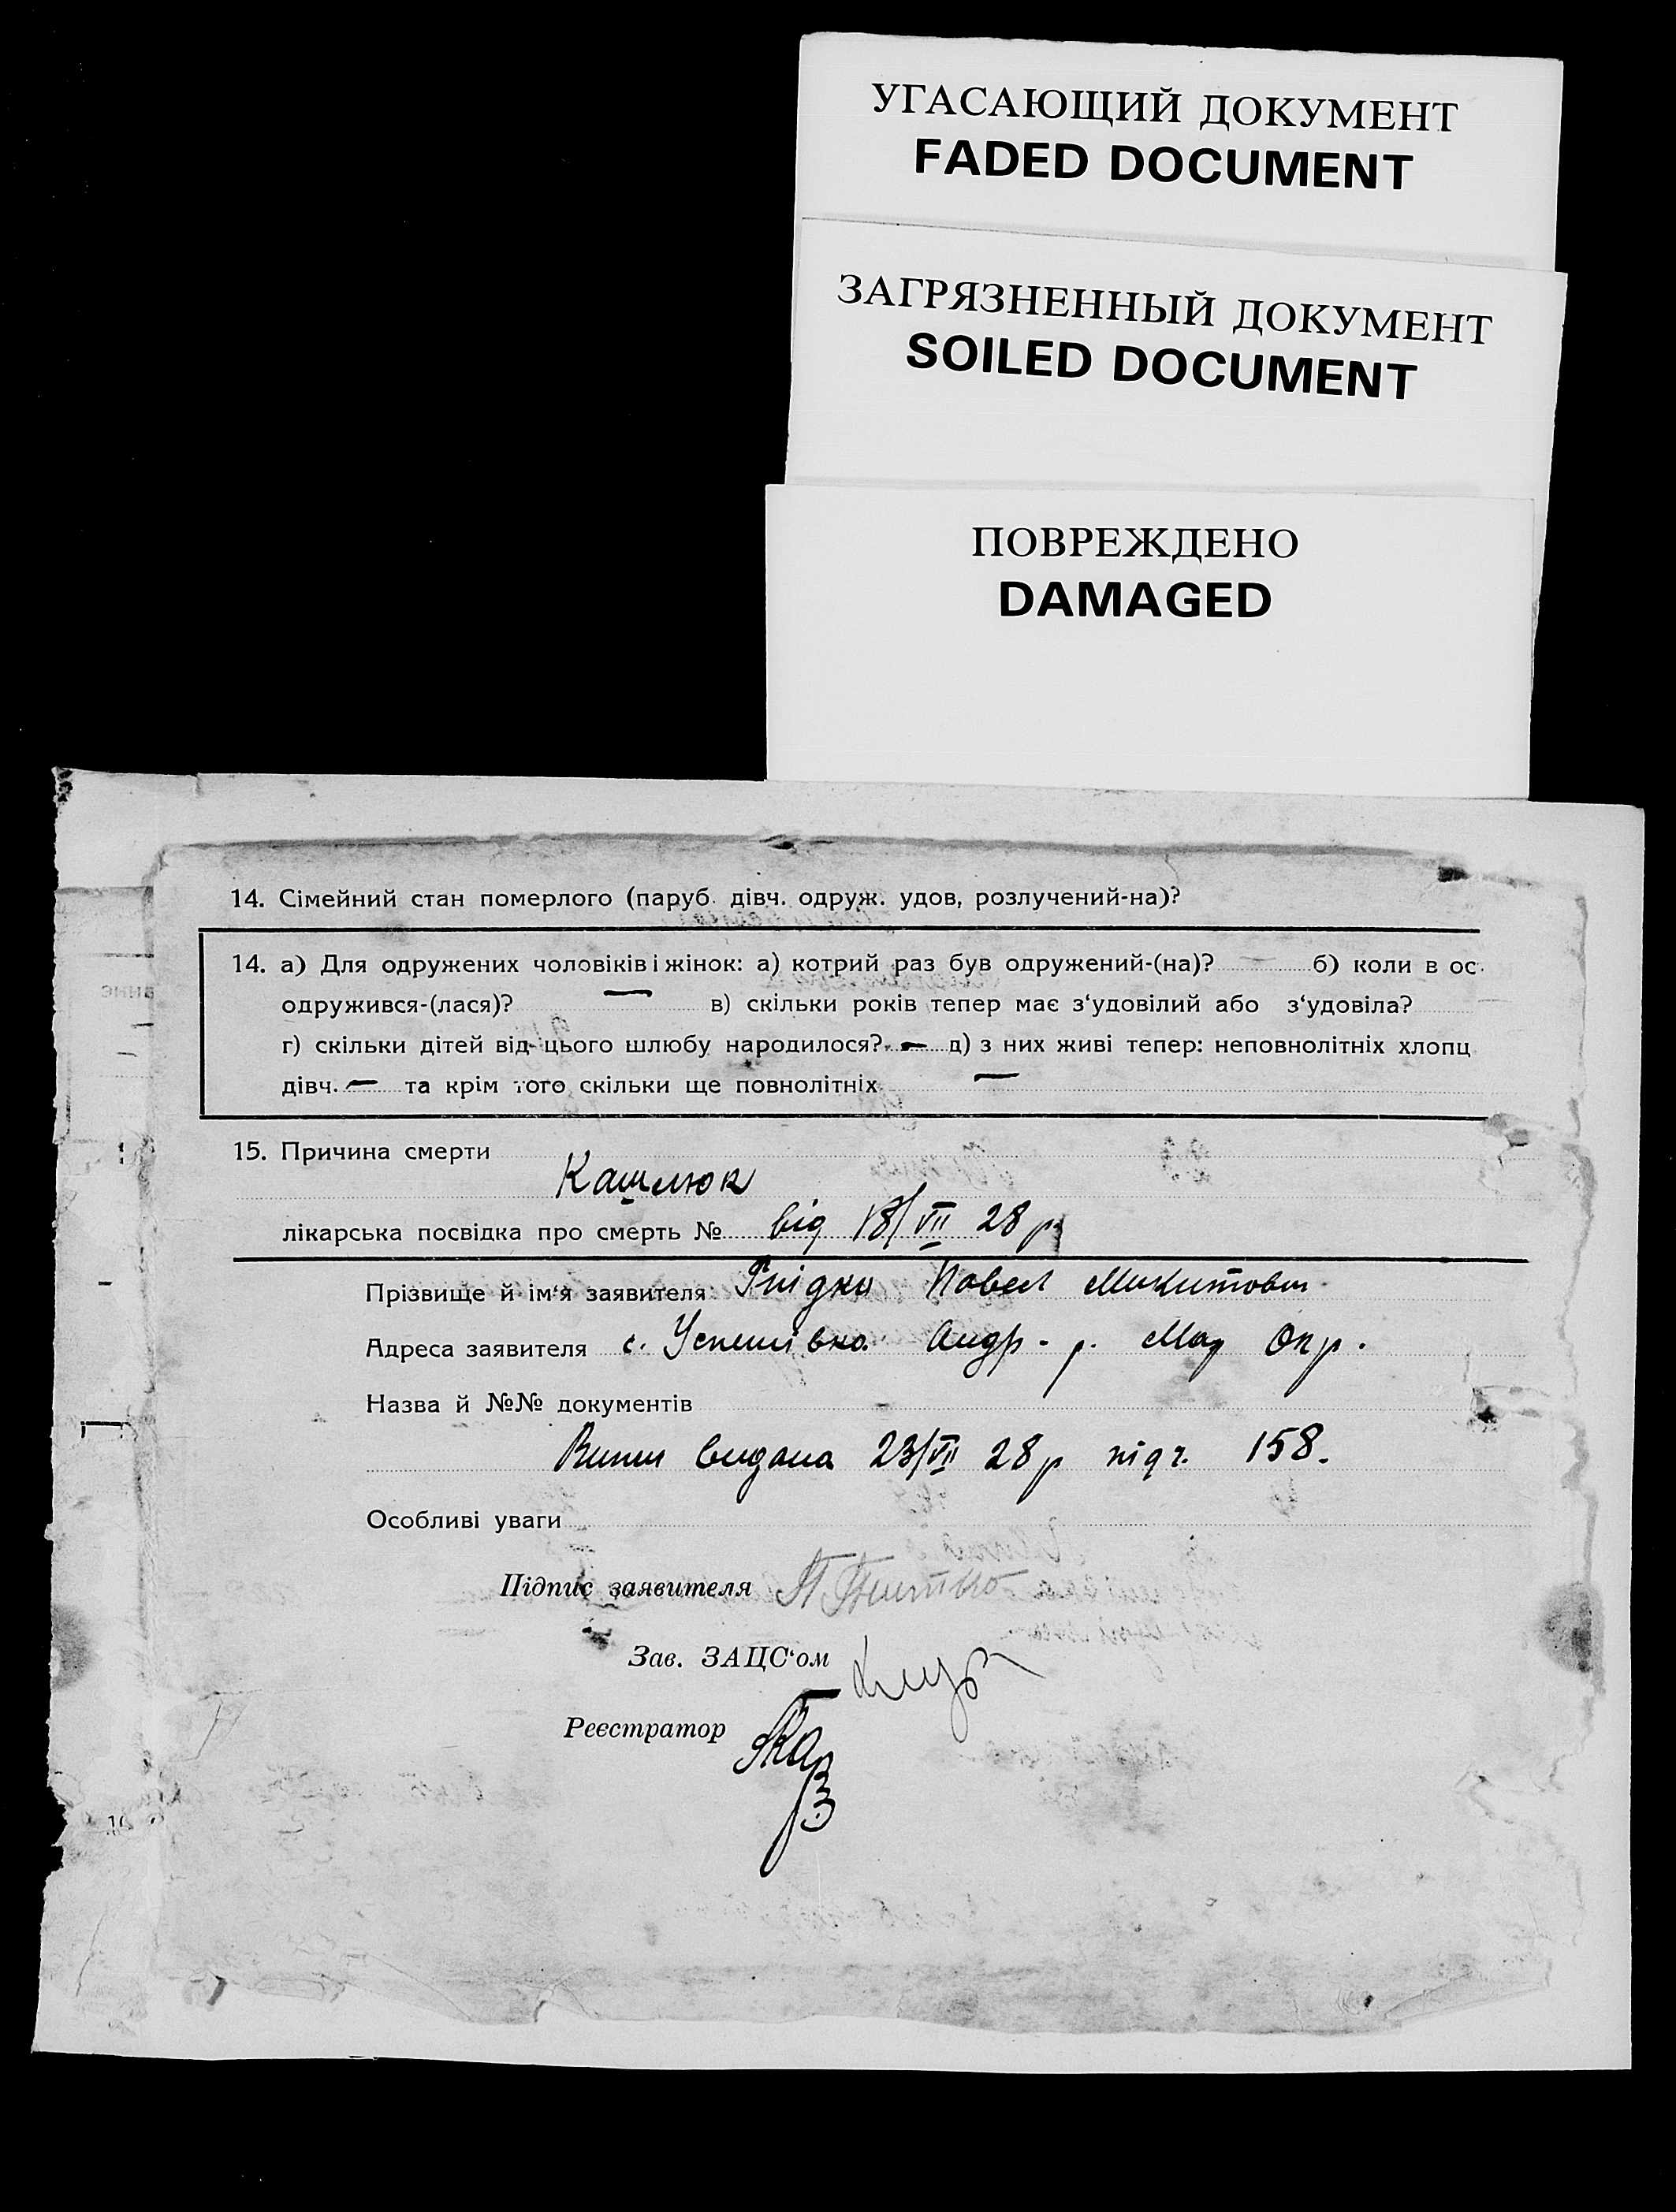 УГАСАЮЩИЙ ДОКУМЕНТ
FADED DOCUMENT
ЗАГРЯЗНЕННЫЙ ДОКУМЕНТ
SOILED DOCUMENT
ПОВРЕЖДЕНО
DAMAGED
14. Сімейний стан померлого (паруб. дівч. одруж. удов, розлучений-на)?
14. а) Для одружених чоловіків і жінок: а) котрий раз був одружений-(на)? — б) коли в ос
одружився-(лася)? — в) скільки років тепер має з‘удовілий або з‘удовіла?
г) скільки дітей від цього шлюбу народилося? — д) з них живі тепер: неповнолітніх хлопц
дівч. — та крім того скільки ще повнолітніх —
15. Причина смерти
Кашлюк
лікарська посвідка про смерть № від 18/VII 28 р
Прізвище й ім‘я заявителя: Павел Микитович
Адреса заявителя с. Успенівка Андр. р. Мар Окр.
Назва й №№ документів –
Випис видана 23/VII 28 р під ч. 158.
Особливі уваги
Підпис заявителя
Зав. ЗАЦС‘ом
Реєстратор